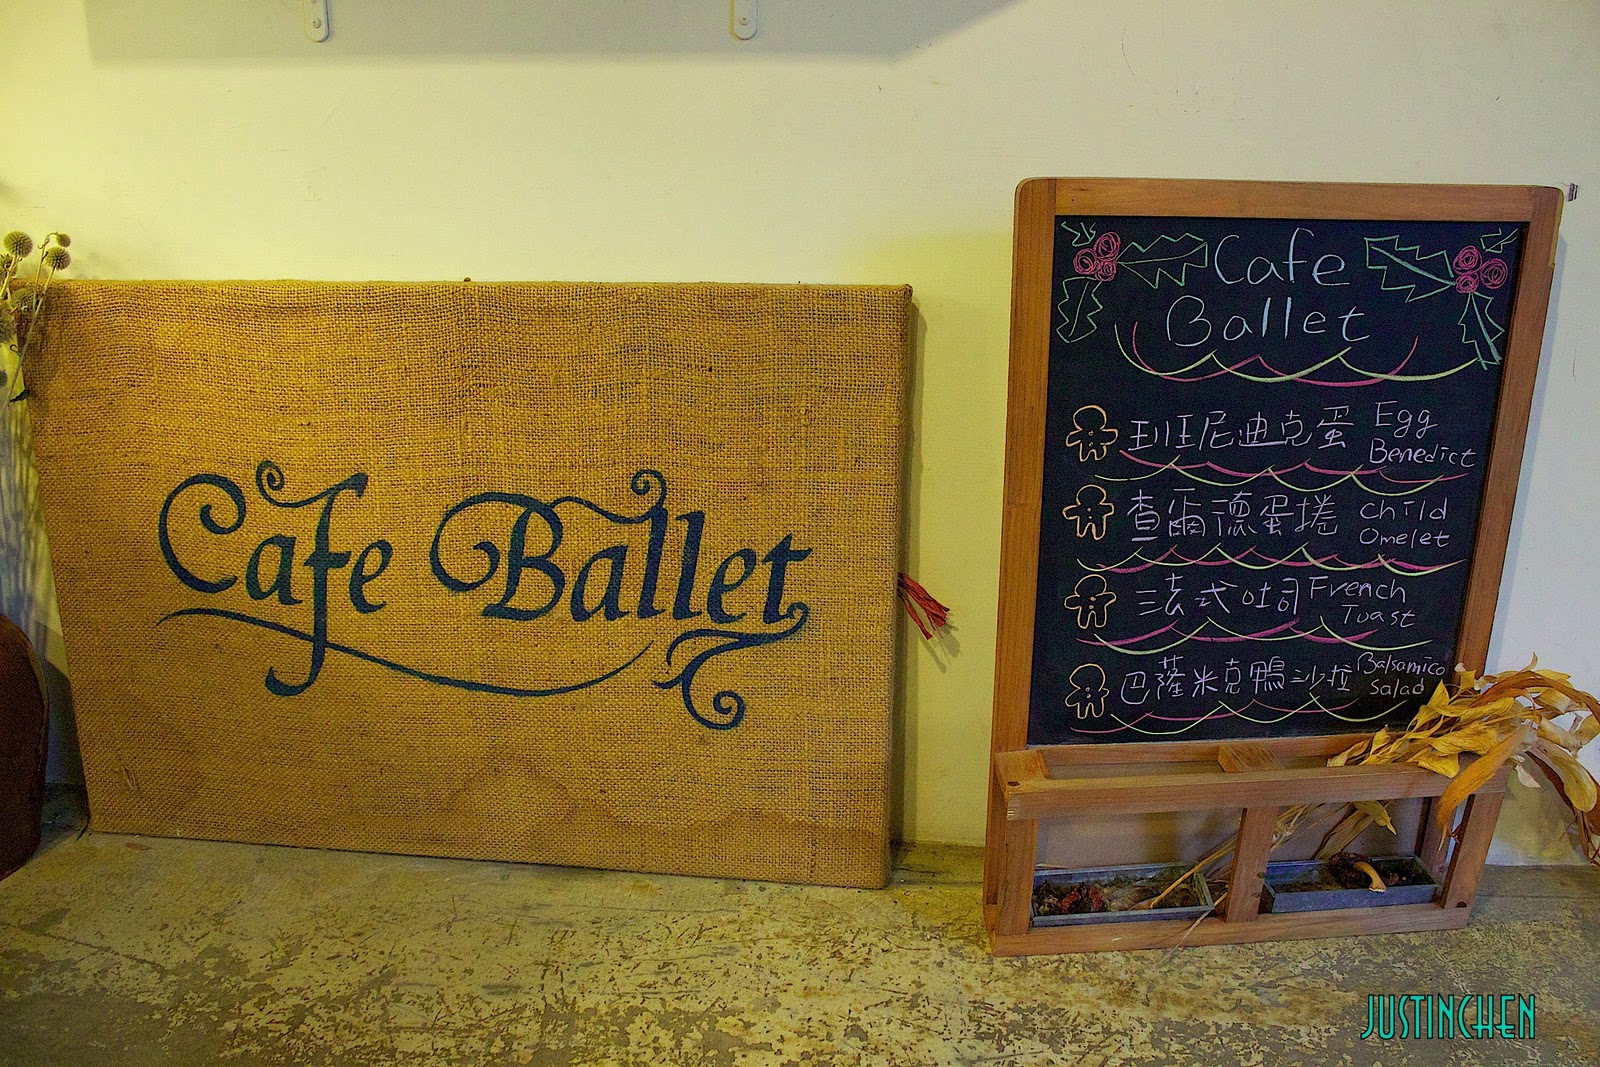 Cafe Ballet
Cafe
Ballet
班尼迪克蛋 Egg
Benedict
查爾德蛋捲 child
omelet
法式吐司 French
Toast
巴薩米克鴨沙拉 Balsamico
Salad
JUSTINCHEN